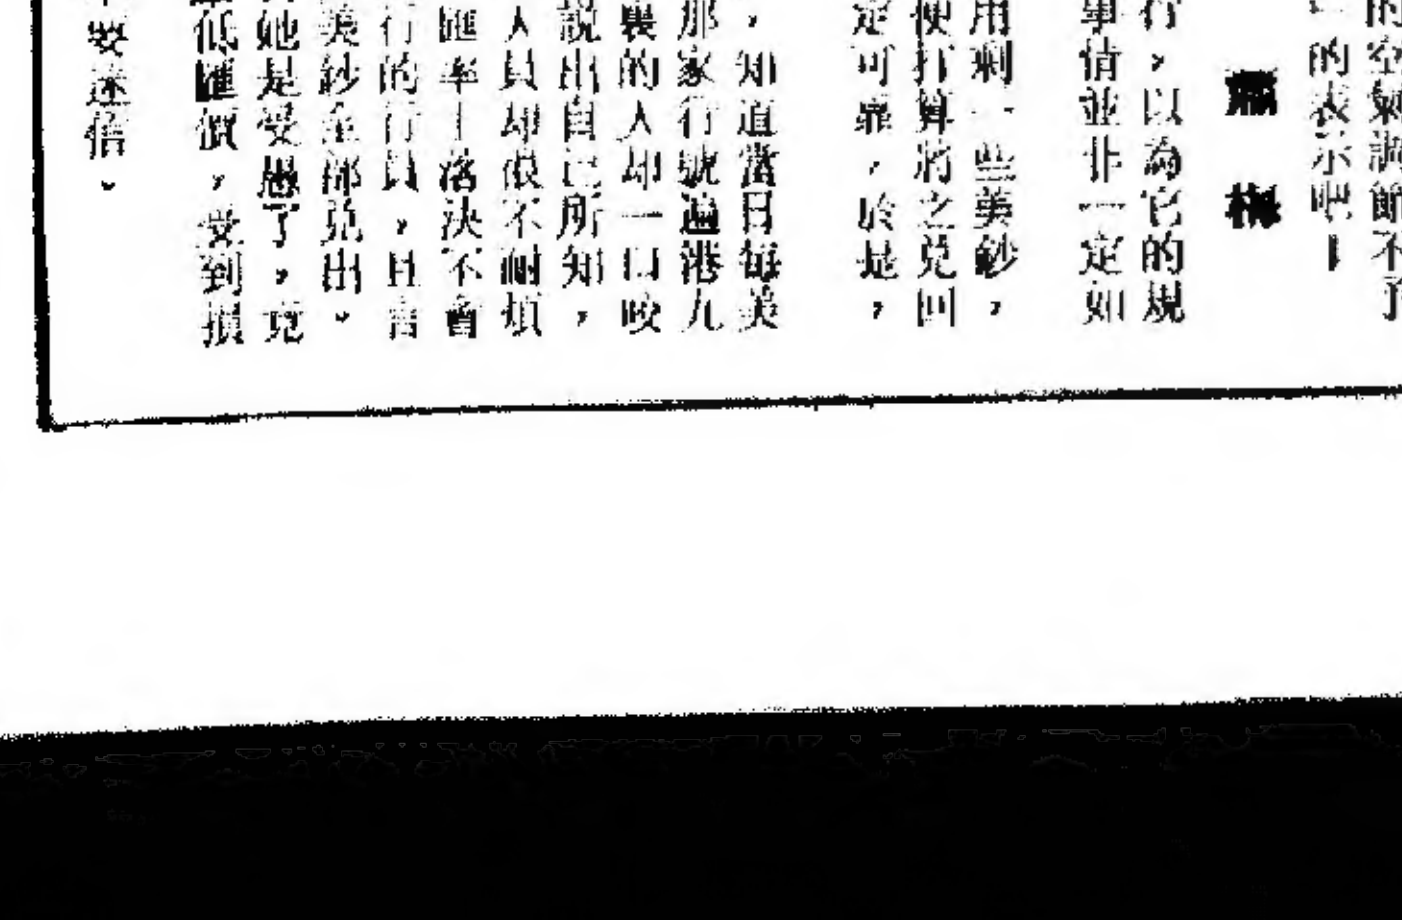 的空氣調節不了
的表示吧！
蕭梅
行，以為它的規
事情並非一定如
用剩一些美鈔，
便打算將之兌回
定可靠，於是，
，知道當日每美
那家行號遍港九
裏的人却一口咬
說出自己所知，
人員却很不耐煩
匯率上落決不會
行的行員，且言
美鈔全部兌出。
她是受愚了，竟
低匯價，受到損
要迷信。